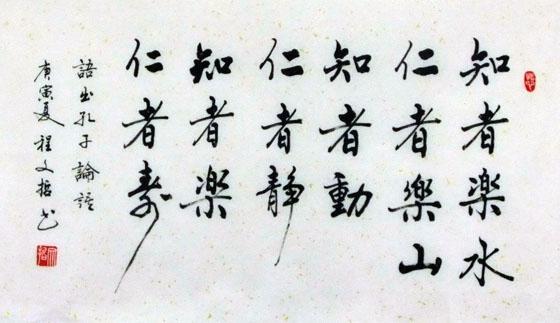 知者楽水
仁者樂山
知者動
仁者静
知者楽
仁者寿
語出孔子論語
庚寅夏程文哲书